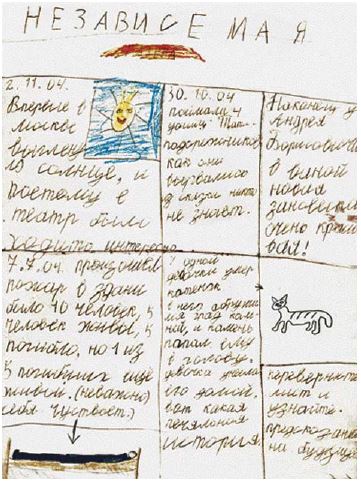 НЕЗАВИСЕМАЯ
2.11.04.
Впервые в
Москве
выглену
ло солнце, и
поетому в
театр было
ходить интересно
30.10.04
поймали 4
улицу.
подснежников
как они
из сказки никто
не знает.
Наконец у
Андрея
Борисовича
в виной
новая
зановеска
очено краси
вая!
7.7.04. произошёл
пожар в здани
было 10 человек, 5
человек живы, 5
погибло, но 1 из
5 погибших ещё
живой. (неважно
себя чуствоет.)
У одной
девочки умер
котёнок
в него
ка
ной, и камень
папал ему
в голову.
девочка
его домой,
вот какая
печялоная
история
переверните
лист и
узнайте.
предсказание
на будущее